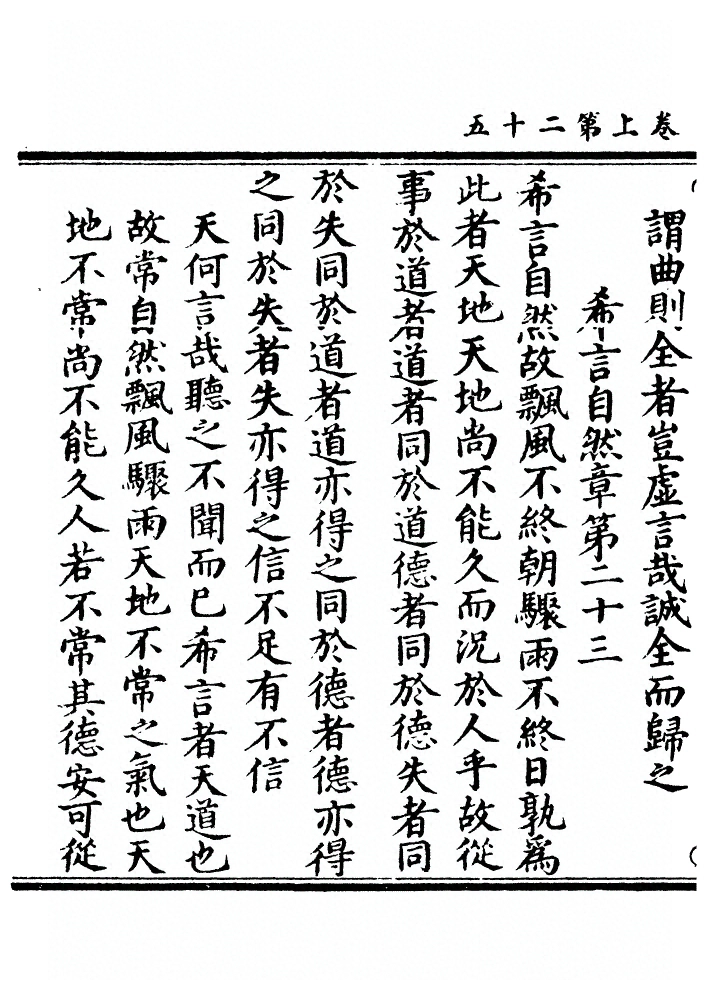 卷上第二十五
謂曲則全者豈虛言哉誠全而歸之
希言自然章第二十三
希言自然故飄風不終朝驟雨不終日孰為
此者天地天地尚不能久而況於人乎故從
事於道者道者同於道德者同於德失者同
於失同於道者道亦得之同於德者德亦得
之同於失者失亦得之信不足有不信
天何言哉聽之不聞而已希言者天道也
故常自然飄風驟雨天地不常之氣也天
地不常尚不能久人若不常其德安可從